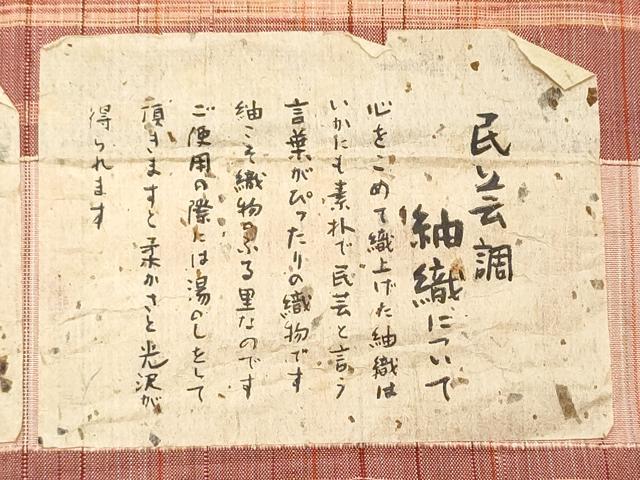 民芸調
紬織について
心をこめて織上げた紬織は
いかにも素朴で民芸と言う
言葉がぴったりの織物です
紬こそ織物のふる里なのです
ご使用の際には湯のしをして
頂きますと柔かさと光沢が
得られます